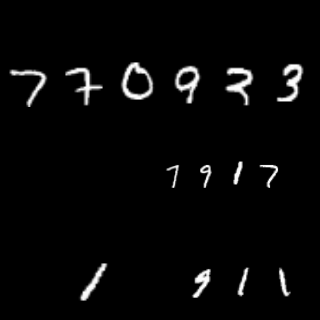 770933
7917
1 911